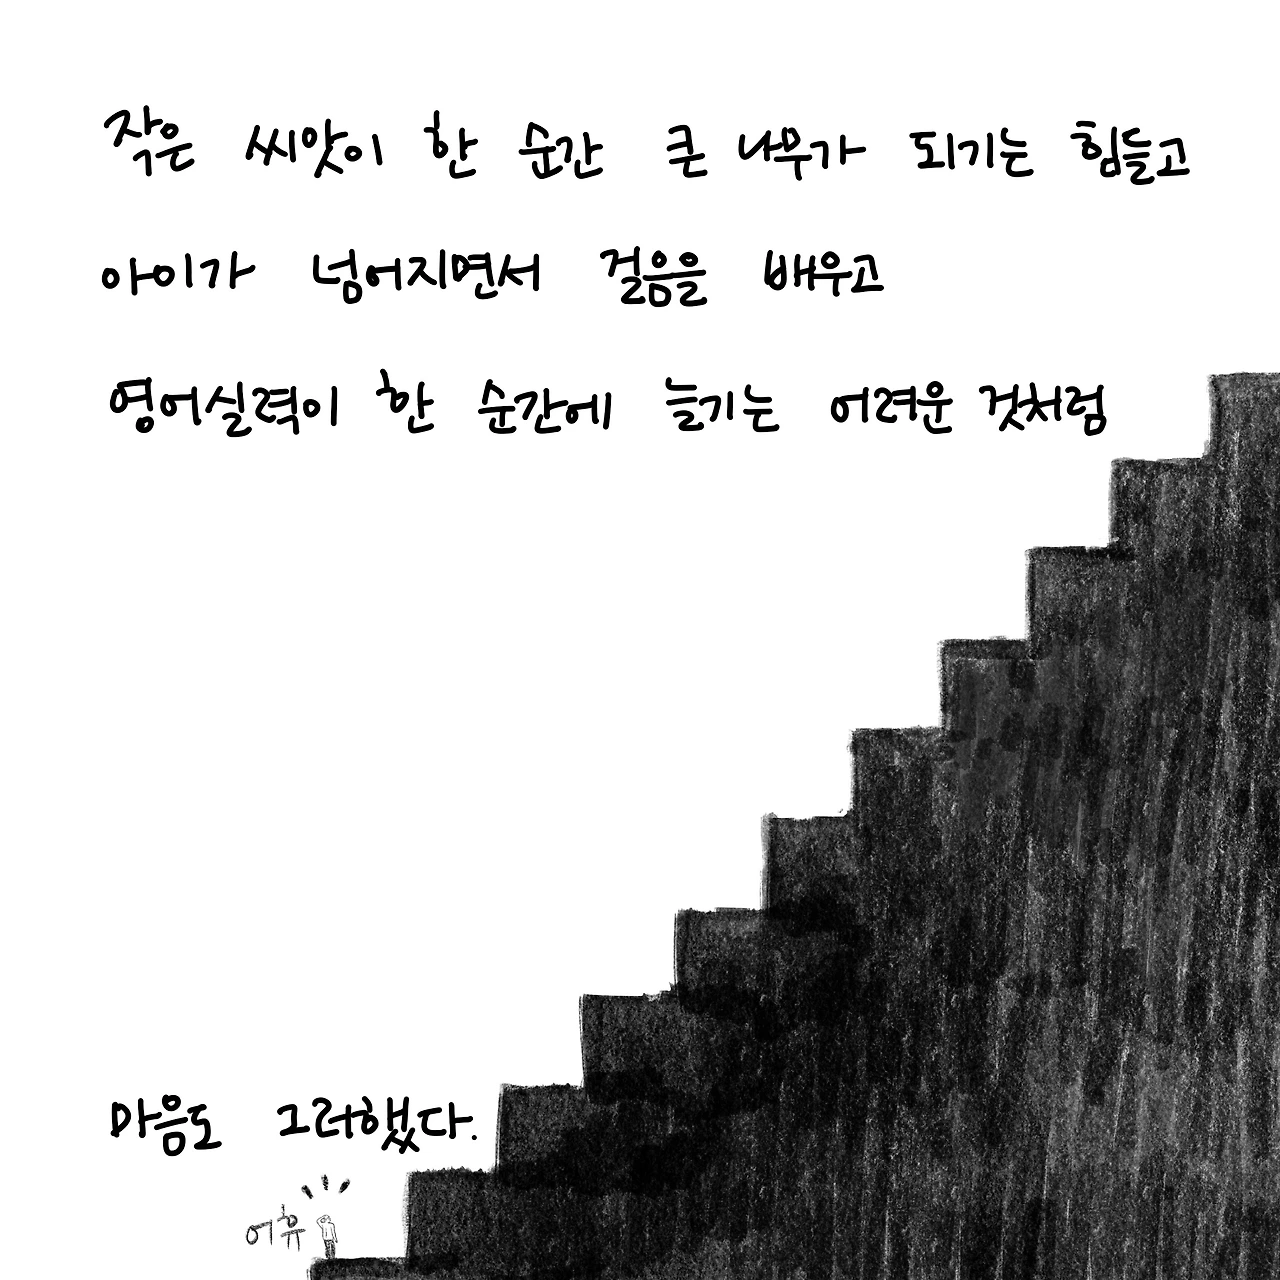 작은 씨앗이 한 순간 큰 나무가 되기는 힘들고
아이가 넘어지면서 걸음을 배우고
영어실력이 한 순간에 늘기는 어려운 것처럼
마음도 그러했다.
어휴